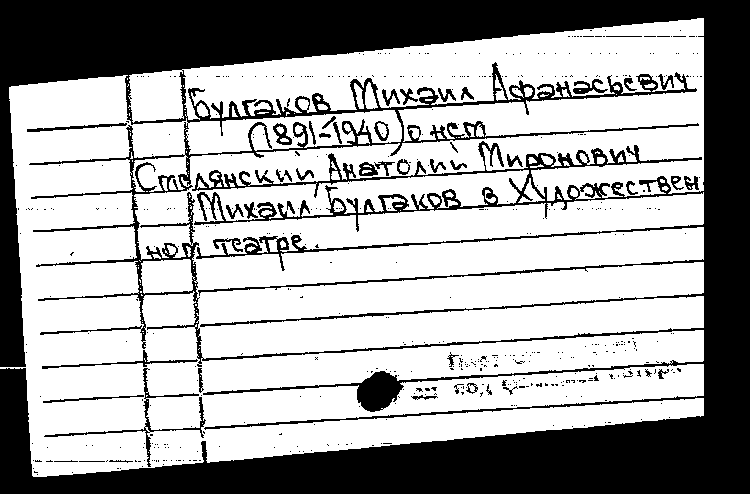 Булгаков Михаил Афанасьевич
(1891-1940) о нем
Смелянский Анатолий Миронович
Михаил Булгаков в Художествен
ном театре.
под